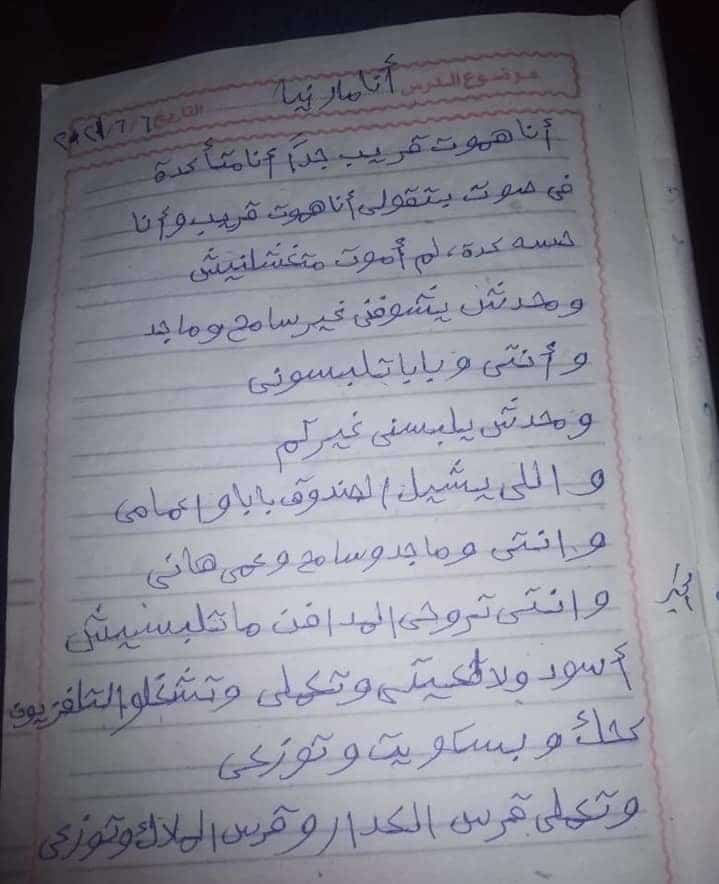 موضوع الدرس أنا مارينا التاريخ ٢٠٢١/٦/٦
أنا هموت قريب جدًا أنا متأكدة
فى صوت بتقولى أنا هموت قريب وأنا
حسه كدة، لم أموت متغسلنيش
ومحدش يشوفنى غير سامح وماجد
وأنتى وبابا تلبسونى
ومحدش يلبسنى غيركم
واللى يشيل الصندوق بابا واعمامى
وانتى وماجد وسامح وعمى هانى
وانتى تروحى المدافن ماتلبسيش
أسود ولا تعيتى وتعملى وتشغلو التلفزيون
كحك وبسكويت وتوزعى
وتعملى قرس الكدار وقرس الملاك وتوزعى